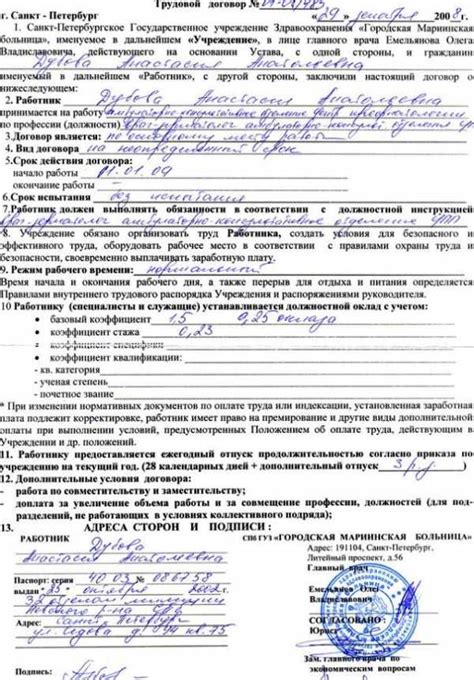 Трудовой договор №
г. Санкт - Петербург «29» декабря 2008г.
1. Санкт-Петербургское Государственное учреждение Здравоохранения «Городская Мариинская
больница», именуемое в дальнейшем «Учреждение», в лице главного врача Емельянова Олега
Владиславовича, действующего на основании Устава, с одной стороны, и гражданин
Дубова Анастасия Анатольевна
именуемый в дальнейшем «Работник», с другой стороны, заключили настоящий договор о
нижеследующем:
2. Работник Дубова Анастасия Анатольевна
принимается на работу
по профессии (должности)
3.Договор является: по основному месту работы
4. Вид договора на неопределенный срок
5.Срок действия договора:
начало работы 11.01.09
окончание работы
6.Срок испытания без испытания
7.Работник должен выполнять обязанности в соответствии с должностной инструк
8. Учреждение обязано организовать труд Работника, создать условия для безопасного и
эффективного труда, оборудовать рабочее место в соответствии с правилами охраны труда и
безопасности, своевременно выплачивать заработную плату.
9. Режим рабочего времени: нормальный
Время начала и окончания рабочего дня, а также перерыв для отдыха и питания определяется
Правилами внутреннего трудового распорядка Учреждения и распоряжениями руководителя.
10 Работнику (специалисты и служащие) устанавливается должностной оклад с учетом:
• базовый коэффициент 1,5 0,25 оклада
• коэффициент стажа 0,23
• коэффициент специфики
• коэффициент квалификации:
- кв. категория
- ученая степень
- почетное звание
* При изменении нормативных документов по оплате труда или индексации, установленная заработная
плата подлежит корректировке, работник имеет право на премирование и другие виды дополнительной
оплаты при выполнении условий, предусмотренных Положением об оплате труда, действующим в
Учреждении и др. положений.
11. Работнику предоставляется ежегодный отпуск продолжительностью согласно приказа по
учреждению на текущий год. (28 календарных дней + дополнительный отпуск
12. Дополнительные условия договора:
- работа по совместительству и заместительству;
- доплата за увеличение объема работы и за совмещение профессий, должностей (для под-
разделений, не работающих в условиях коллективного подряда);
13. АДРЕСА СТОРОН И ПОДПИСИ:
РАБОТНИК Дубова СПб ГУЗ «ГОРОДСКАЯ МАРИИНСКАЯ БОЛЬНИЦА»
Анастасия Анатольевна Адрес: 191104, Санкт-Петербург.
Литейный проспект, д.56
Главный врач
Паспорт: серия 40 03 № 086758
выдан 25 октября 2002г. Емельянов Олег
32 отделом милиции Владиславович
Невского р-на СПб СОГЛАСОВАНО:
Адрес: Санкт Петербург
ул. Седова д. кв. 75
Зам. главного врача по
Подпись: экономическим вопросам